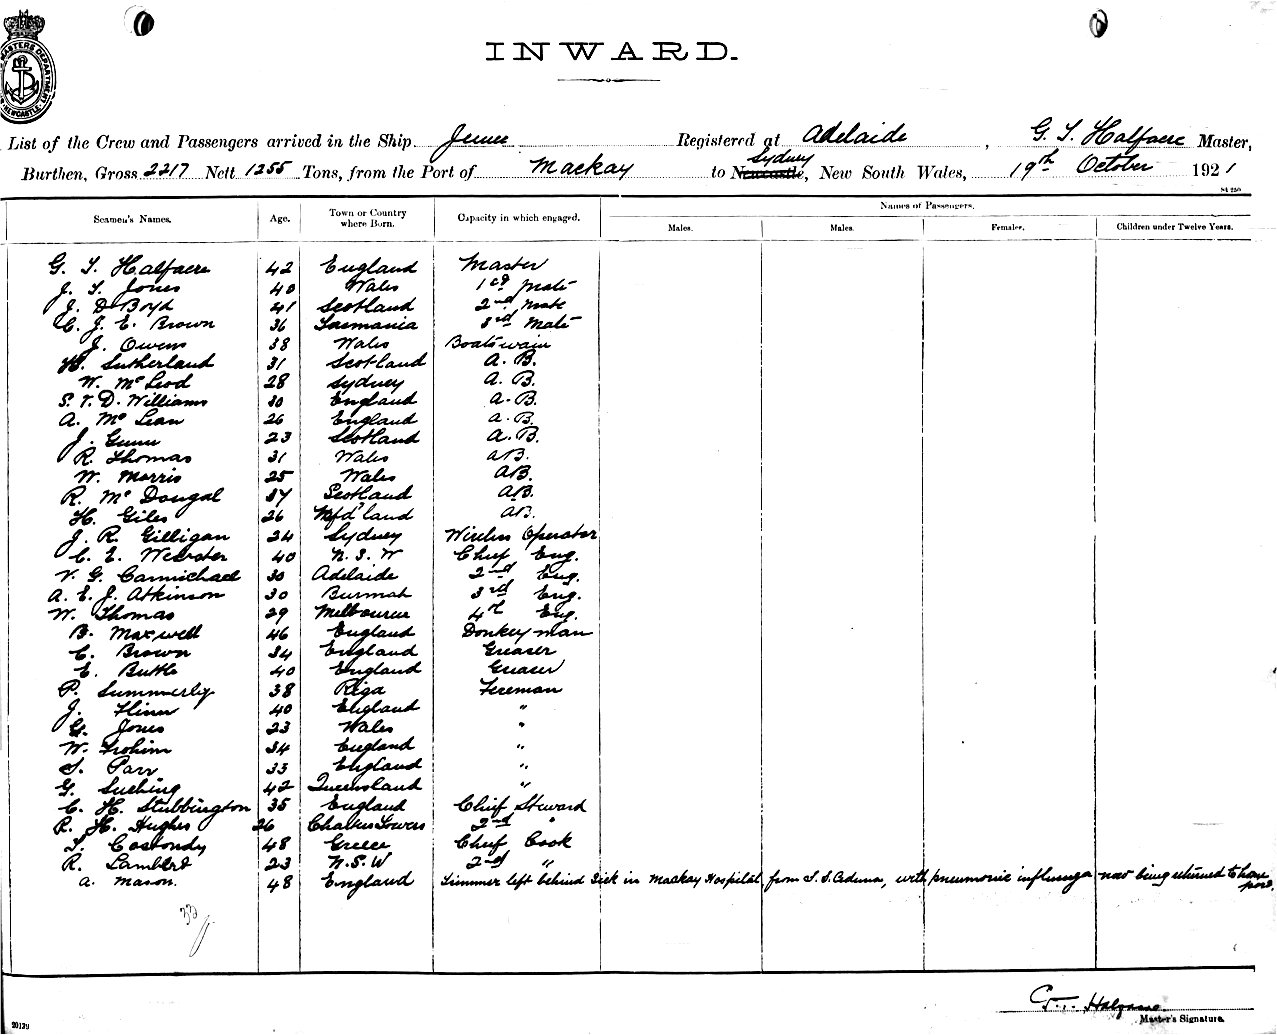 MASTERS DEPARTMENT NEWCASTLE
INWARD.
List of the Crew and Passengers arrived in the Ship Registered at Adelaide, G. S. Halfacre Master,
Burthen, Gross 2217 Nett 1255 Tons, from the Port of Mackay to Newcastle Sydney, New South Wales, 19th October 1921
St 250
Seamen's Names. Age. Town or Country where Born. Capacity in which engaged. Names of Passengers.
Males. Males. Females. Children under Twelve Years.
G. S. Halfacre 42 England Master
J. S. Jones 40 Wales 1st Mate
J. D Boyd 41 Scotland 2nd Mate
C. J. E. Brown 36 Tasmania 3rd Mate
J. Owens 38 Wales Boatswain
H. Sutherland 31 Scotland A. B.
W. McLeod 28 Sydney A. B.
S. V. D. Williams 30 England A. B.
A. McLean 26 England A. B.
J. Gunn 23 Scotland A. B.
R. Thomas 31 Wales AB.
W. Morris 25 Wales AB.
R. McDougal 37 Scotland AB.
H. Giles 26 Nfd'land AB.
J. R. Gilligan 24 Sydney Wireless Operator
C. E. Webster 40 N. S. W Chief Eng.
V. G. Carmichael 30 Adelaide 2nd Eng.
A. E. J. Atkinson 30 Burmah 3rd Eng.
W. Thomas 29 Melbourne 4th Eng.
B. Maxwell 46 England Donkeyman
C. Brown 34 England Greaser
E. Buttle 40 England Greaser
P. Summerly 38 Riga Fireman
J. Flinn 40 England "
G. Jones 23 Wales "
W. 34 England "
S. Parr 33 England "
G. 42 Queensland "
C. H. Stubbington 35 England Chief Steward
R. H. Hughes 26 Charters Towers 2nd "
S. 48 Greece Chief Cook
R. Lambert 23 N. S. W 2nd "
A. Mason. 48 England Trimmer left behind sick in Mackay Hospital from S. S. Aduna, with pneumonic influenza now being returned to home port.
33
Master's Signature.
20139